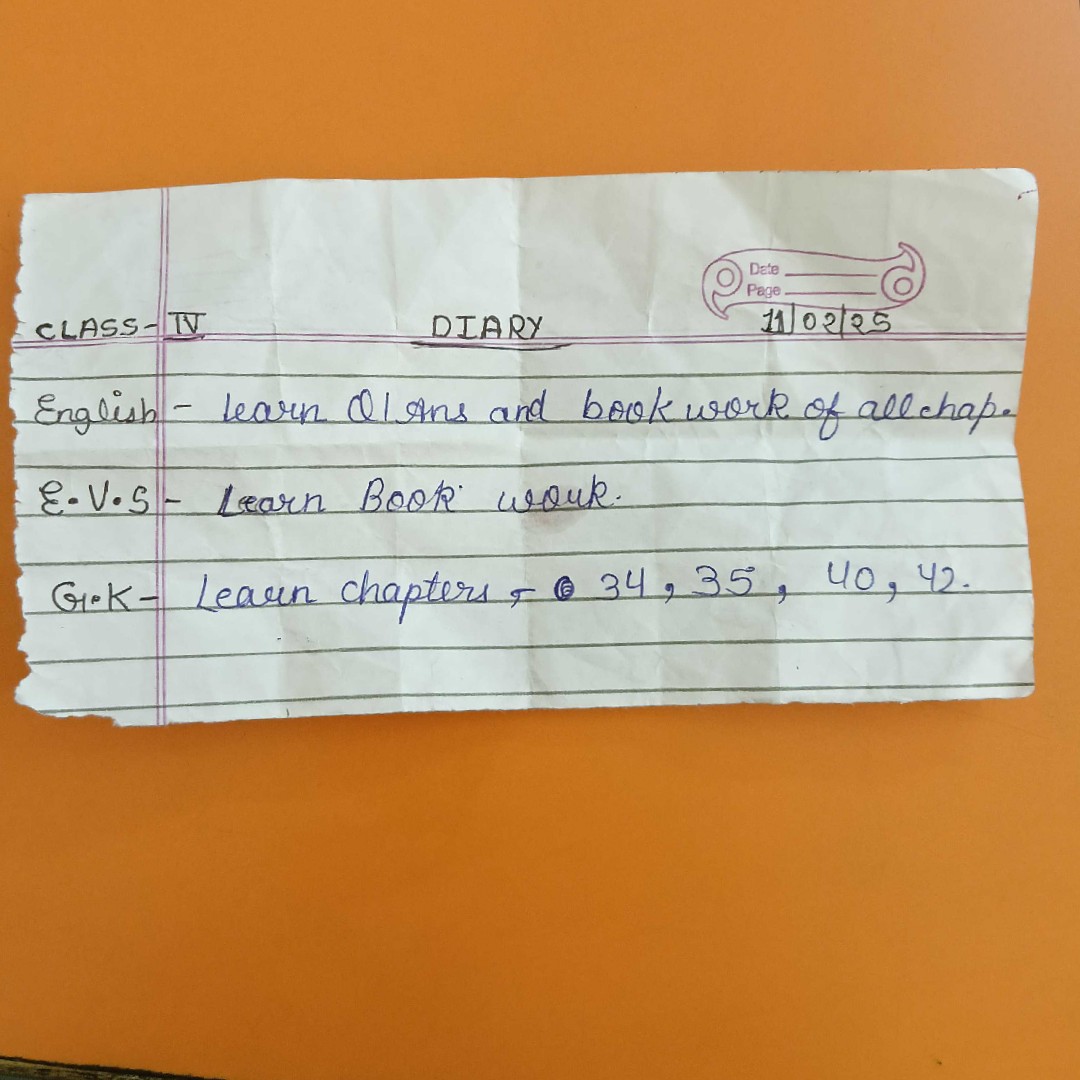 Date
Page
CLASS- IV DIARY 11/02/25
English - Learn Q/Ans and book work of all chap.
E.V.S - Learn Book work.
G.K - Learn chapters, - 34, 35, 40, 42.